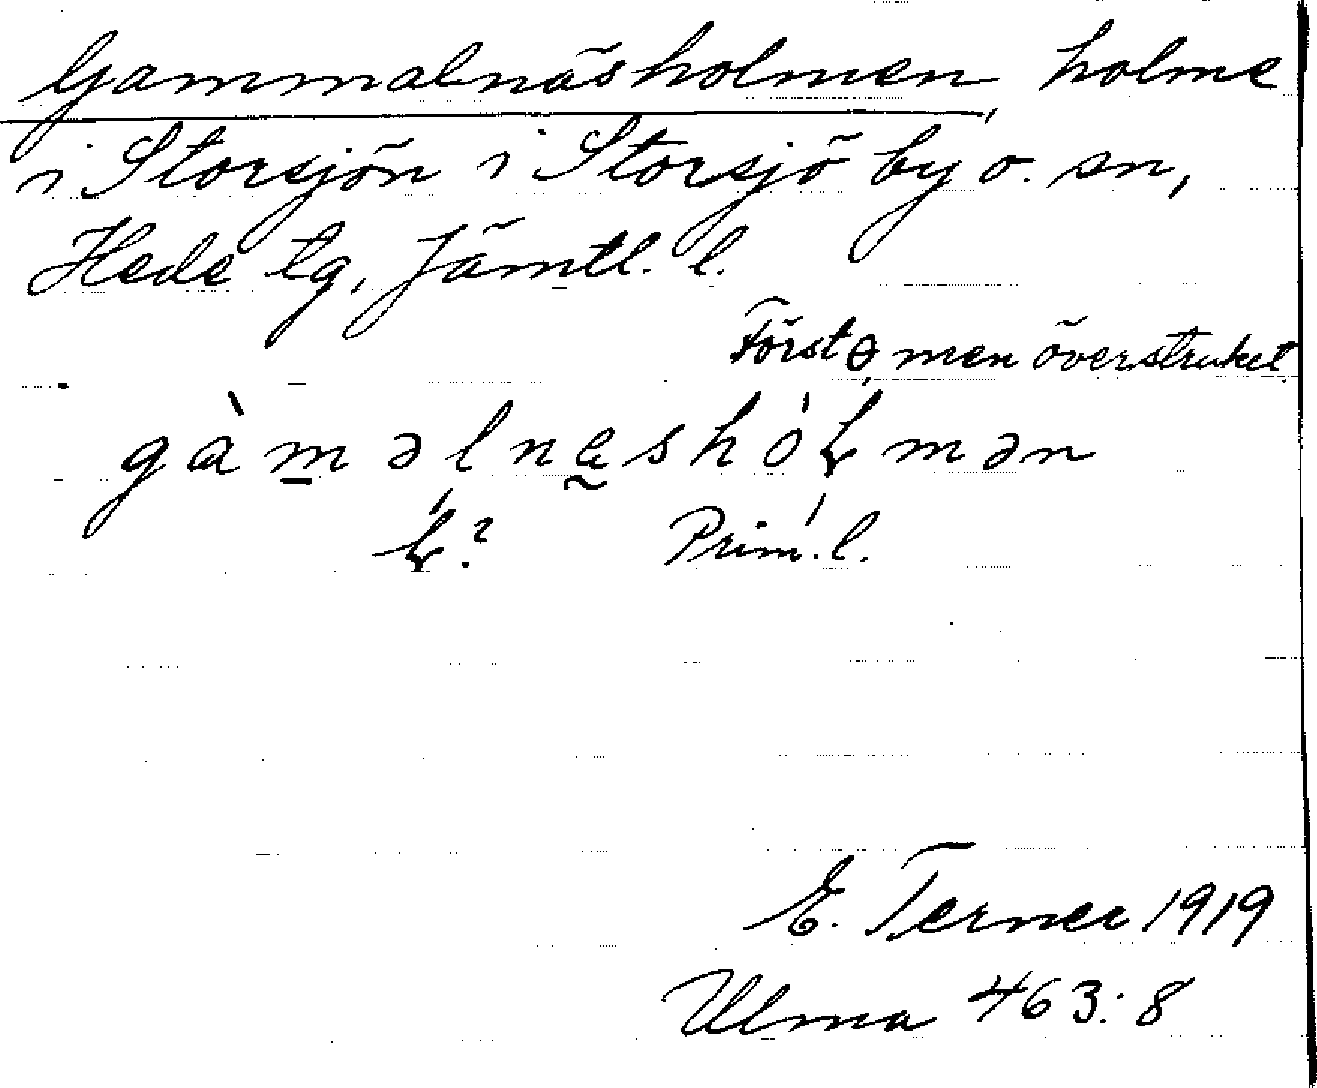 Gammalnäsholmen, holme
i Storsjön i Storsjö by o. sn,
Hede tg, Jämtl. l.
Först ɵ, men överstruket.
gàm̲əlnæ̰shóɽmən
ɽ? Prim. l.
E. Terner 1919
Ulma 463:8